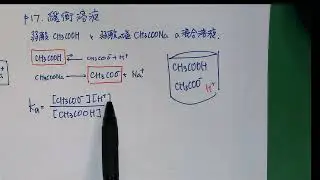 P17. 緩衝溶液
弱酸 CH3COOH 與 弱酸鹽 CH3COONa 混合溶液.
CH3COOH ⇌ CH3COO⁻ + H⁺
CH3COONa → CH3COO⁻ + Na⁺
CH3COOH
CH3COO⁻ H⁺
Ka = [CH3COO⁻][H⁺] / [CH3COOH]